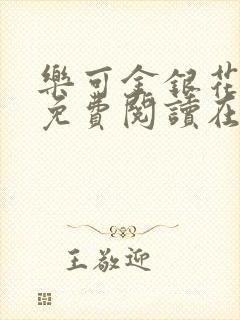 樂可金銀花
免費閱讀在
王敬迎